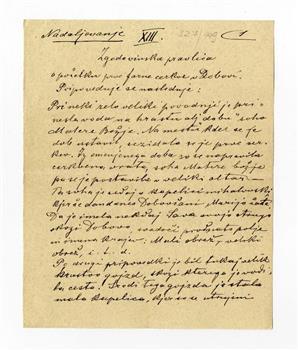 Nadaljovanje XIII. 1
Zgodovinska pravlica
o početku prve farne cerkve v Dobovi.
Pripoveduje se naslednje:
Pri neki zelo veliki povodnji je pri-
nesla voda na hrastu ali dobu "soho
Matere Božje. Na mestu kder se je
dob ustavil, sezidala se je prva cer-
kev. Iz omenjenega doba so se napravila
cerkvena vrata, soha Matere božje
pa se je postavila v veliki oltar.
Ta soha je sedaj v kapelici
Dobovčani, Marija
Da je imela nekdaj Sava svojo strugo
skozi Dobovo, polje
in imena krajev: Mali obrež, veliki
obrež, i. t. d.
Po drugi pripovedki je bil tukaj velik
hrastov gojzd, skozi kterega je vodi-
la cesta. Sredi tega gojzda je stala
mala kapelica, kjer so se utrujeni